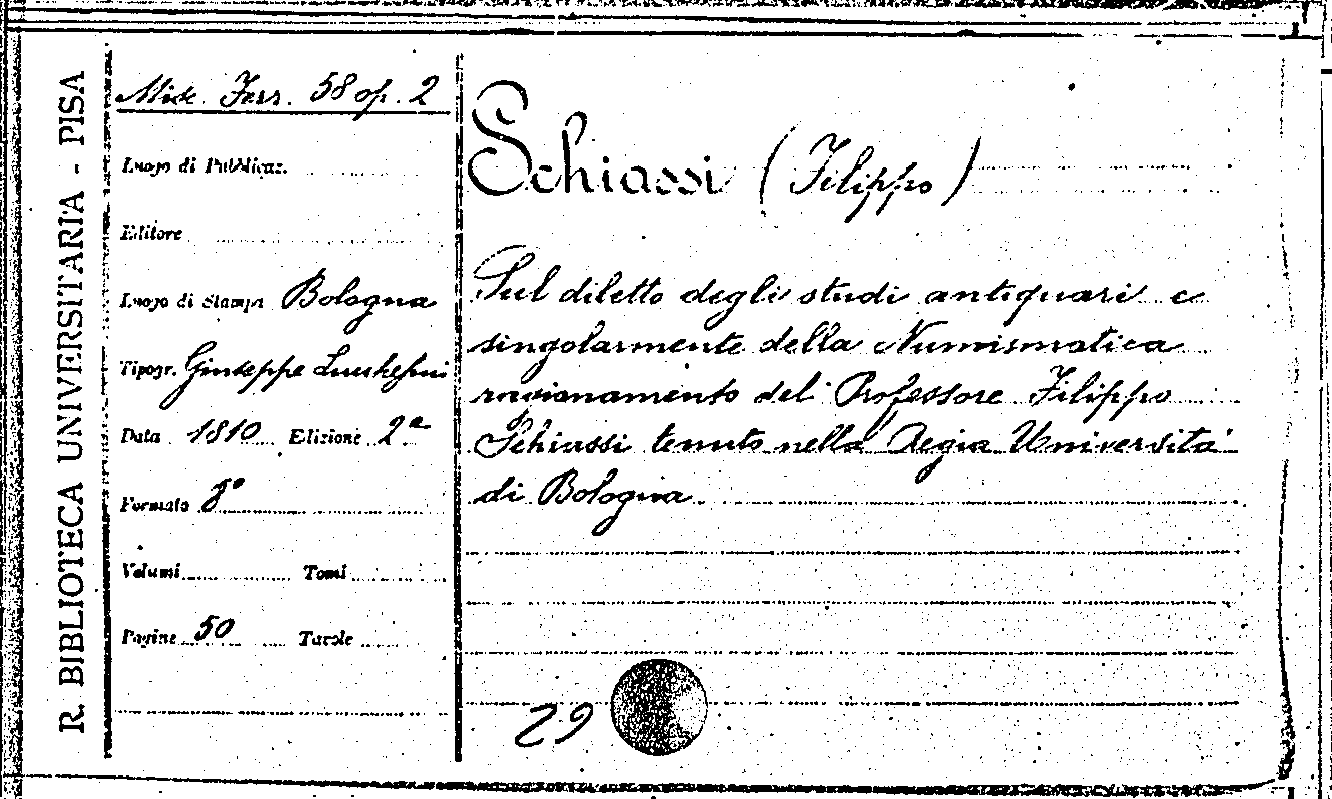 R. BIBLIOTECA UNIVERSITARIA - PISA
Misc. Ferr. 58 op. 2
Luogo di Pubblicaz.
Editore
Luogo di Stampa Bologna
Tipogr. Giuseppe Lucchesini
Data 1810 Edizione 2ª
Formato 8°
Volumi Tomi
Pagine 50 Tavole
Schiassi (Filippo)
Sul diletto degli studi antiquari e
singolarmente della Numismatica
ragionamento del Professore Filippo
Schiassi tenuto nella Regia Università
di Bologna
29